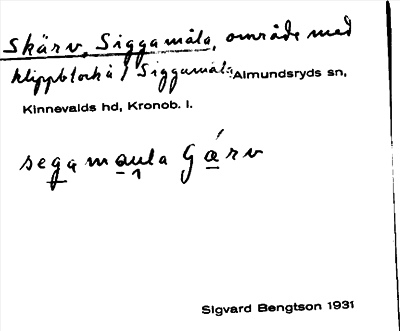 Skärv, Siggamåla, område med
klippblock å Siggamåla. Almundsryds sn,
Kinnevalds hd, Kronob. l.
segamaula Gárv
Sigvard Bengtson 1931